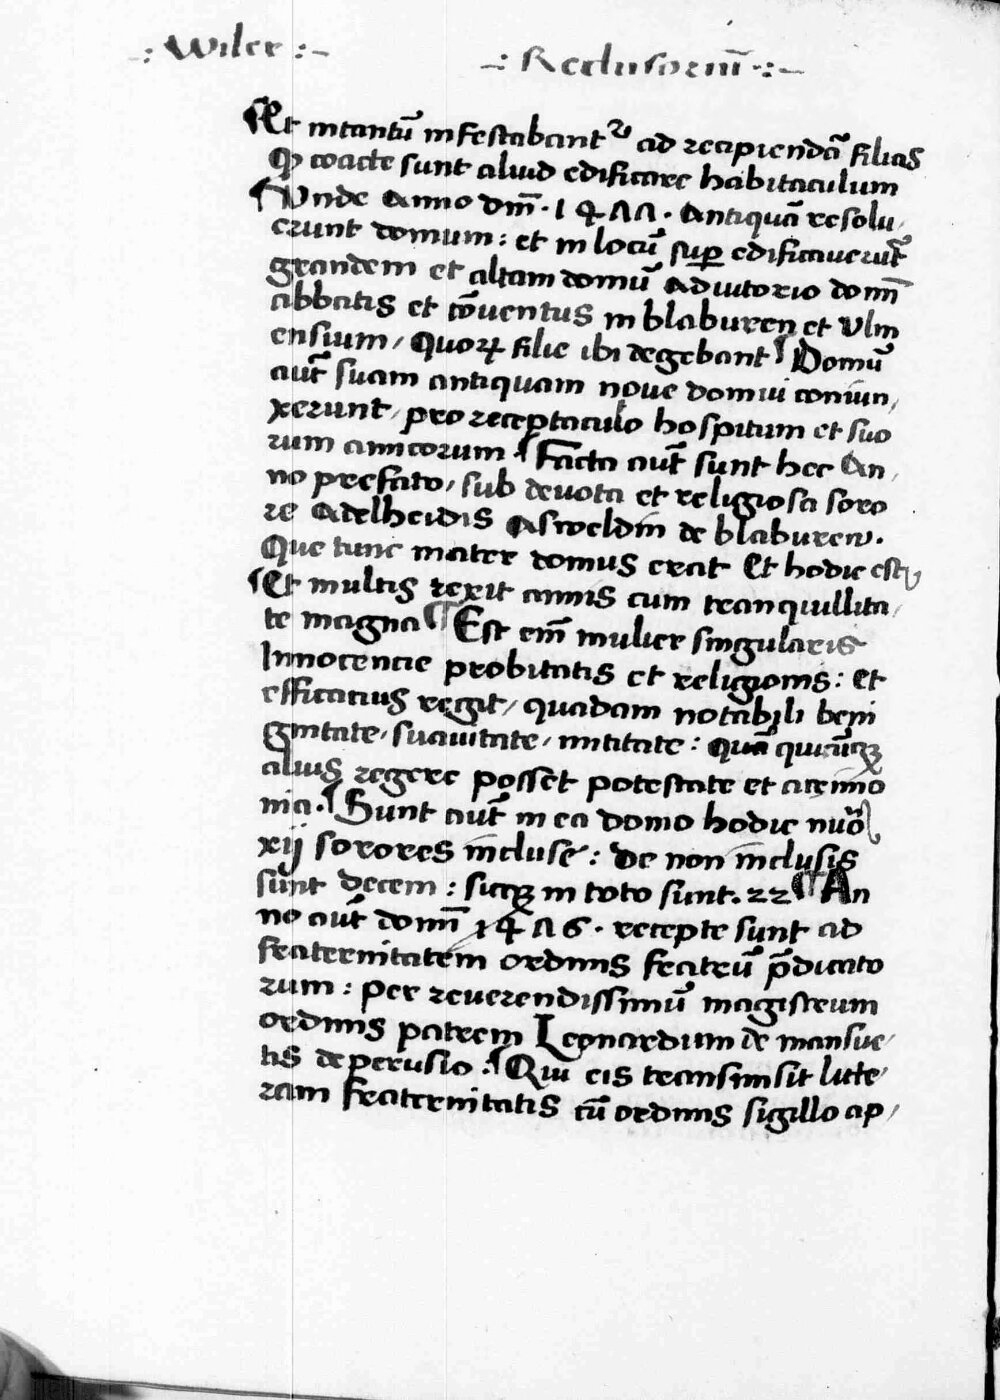 -: Wiler :-
-: Reclusoriū :-
¶ Et intantū infestabantᷣ ad recipiendā filias
Ꝙ coacte sunt aliud edificare habitaculum
¶ Unde Anno dm̄ · 1477 · Antiquā resolu,
erunt domum : et in locū suꝑ edificauerūt
grandem et altam domū Adiutorio domī
abbatis et cōuentus in blaburen et Ulm
ensium / Quoꝝ filie ibi degebant ¶ Domū
aūt suam antiquam noue domui coniun,
xerunt / pro receptaculo hospitum et suo
rum amicorum · ¶ Facta aūt sunt hec An,
no prefato / sub deuota et religiosa soro
re Adelheidis Asweldin de blaburen.
Que tunc mater domus erat Et hodie est
¶ Et multis rexit annis cum tranquillita,
te magna ¶ Est em̄ mulier singularis
Innocencie probitatis et religionis : Et
efficatius regit / quadam notabili beni
gnitate / suauitate / mititate : quā quicūqꝫ
alius regere posset potestate et acrimo
nia · ¶ Sunt aūt in ea domo hodie nūo
xij sorores incluse : De non inclusis
sunt decem : sicqꝫ in toto sunt . 22 ¶ An
no aūt domī 1476 · recepte sunt ad
fraternitatem ordinis fratrū p̄dicato
rum : per reuerendissimū magistrum
ordinis patrem Leonardum de mansue,
tis de perusio : ¶ Qui eis transmisit litte,
ram fraternitatis cū ordinis sigillo ap,